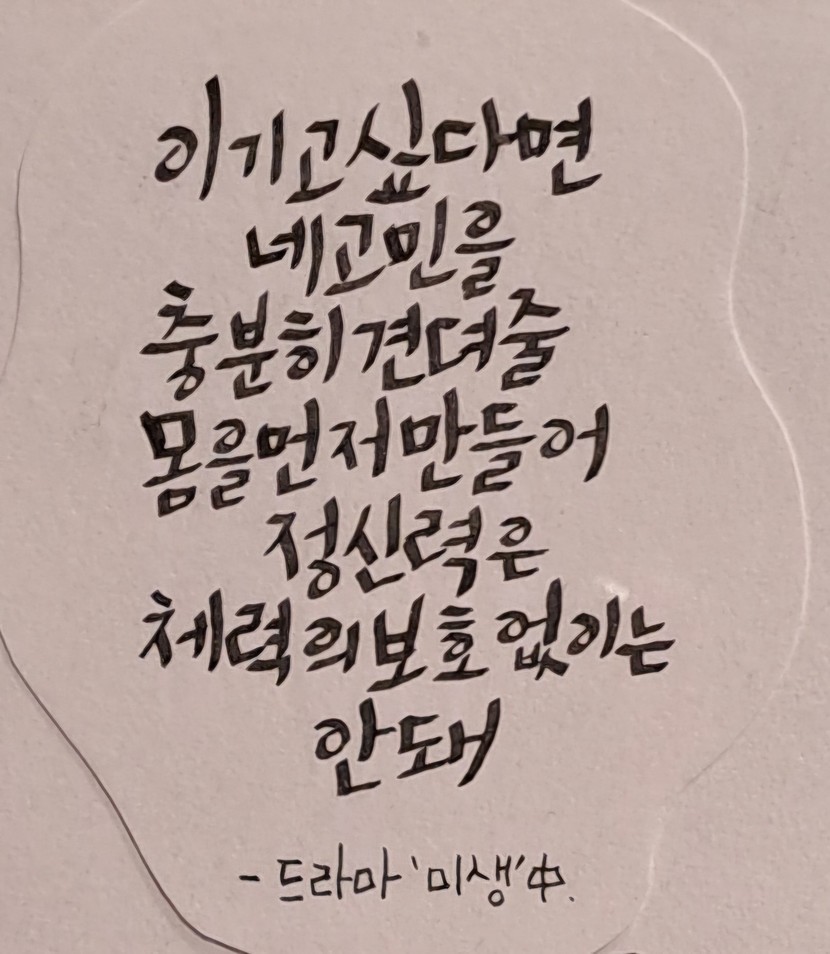 이기고싶다면
네고민을
충분히견뎌줄
몸을먼저만들어
정신력은
체력의보호없이는
안돼
- 드라마 '미생' 中.